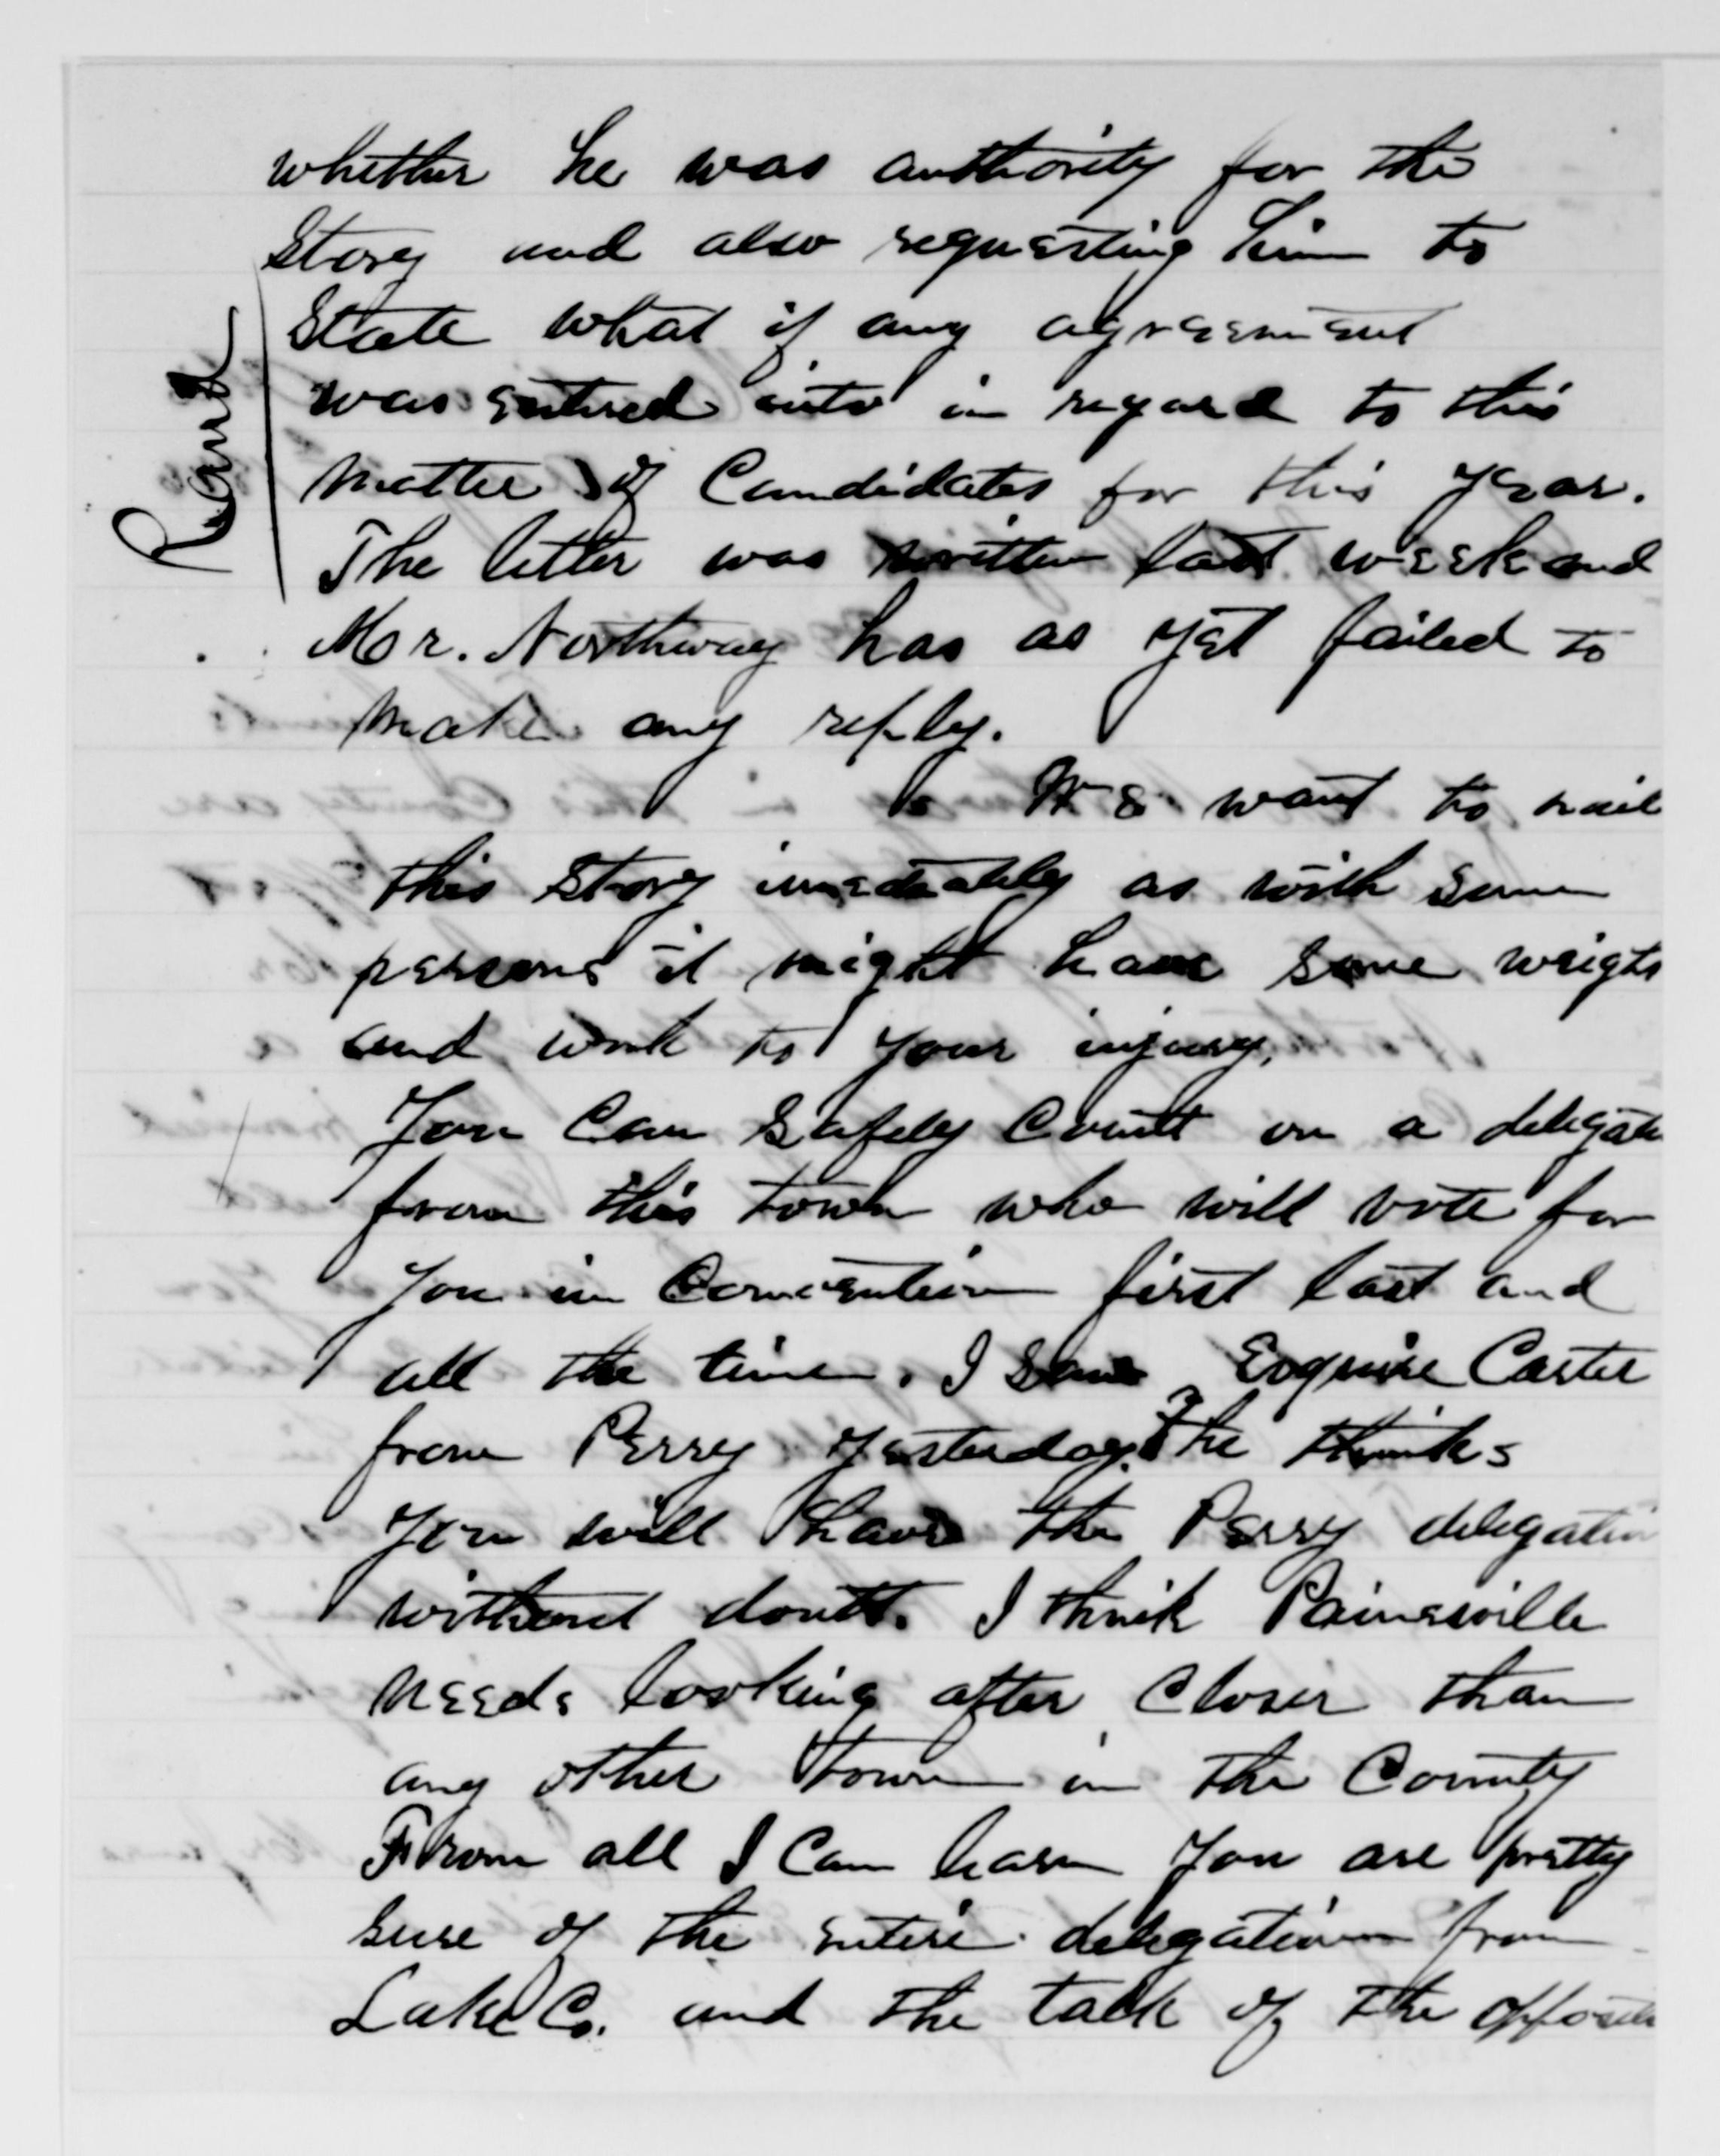 whether he was authority for the
Story and also requesting him to
State what if any agreement
was entered into in regard to this
matter of Candidates for this year.
The letter was written last week and
Mr. Northway has as yet failed to
make any reply.
We want to nail
this Story imediatily as with some
persons it might have some weight
and work to your injury.
You Can Safely Count on a delegate
from this town who will vote for
you in Convention first last and
all the time. I saw Esquire Carter
from Perry yesterday. & he thinks
you will have the Perry delegation
without doubt. I think Painesville
needs looking after Closer than
any other town in the County
From all I Can learn you are pretty
sure of the entire delegation from
Lake Co. and the talk of the
Read